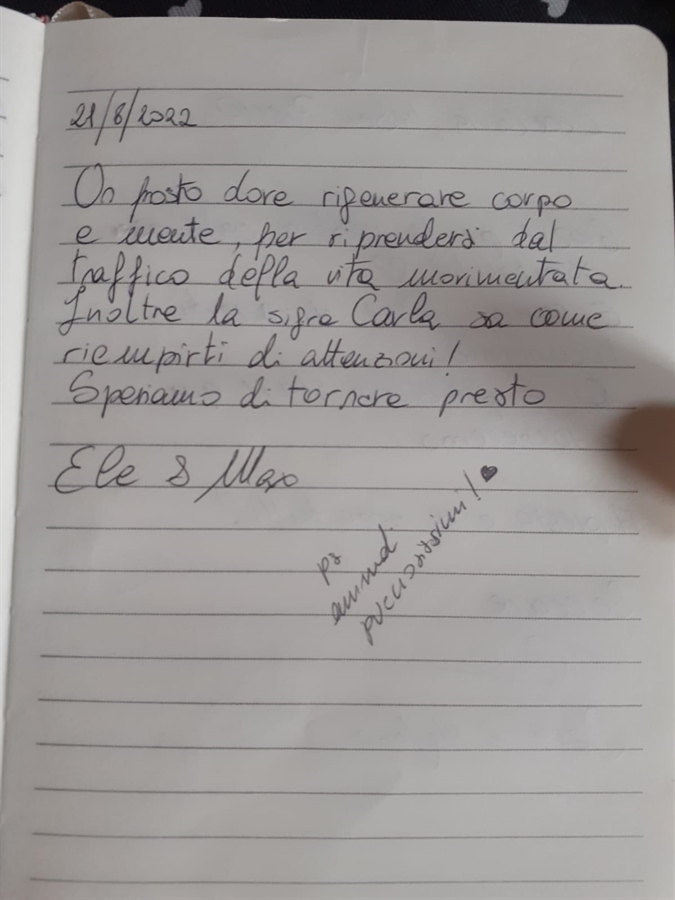 21/8/2022
Un posto dove rigenerare corpo
e mente, per riprendersi dal
traffico della vita movimentata.
Inoltre la sig.ra Carla sa come
riempirti di attenzioni!
Speriamo di tornare presto
Ele & Max
ps
animali
pucciosissimi! ♥